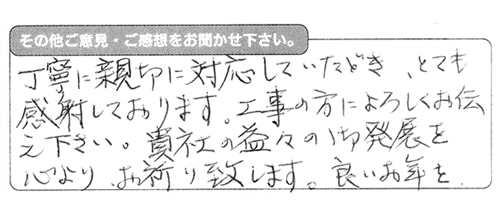 その他ご意見・ご感想をお聞かせ下さい。
丁寧に親切に対応していただき、とても
感射しております。工事の方によろしくお伝
え下さい。貴社の益々の御発展を
心よりお祈り致します。良いお年を